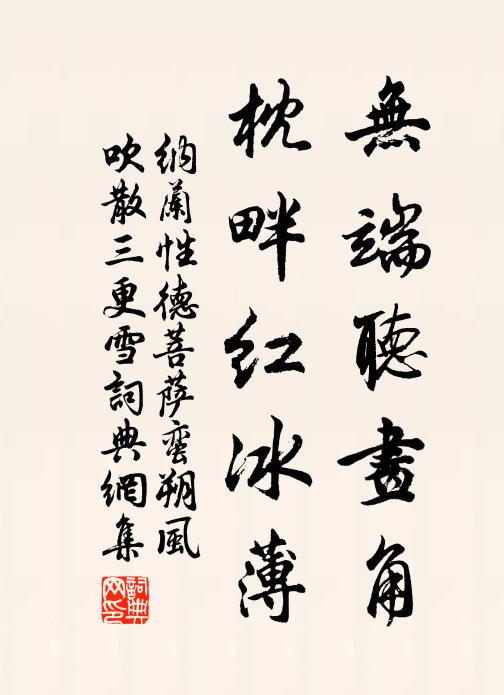 無端聽畫角
枕畔红冰薄
納蘭性德菩萨蛮朔風
吹散三更雪詞典網集
詞典网印